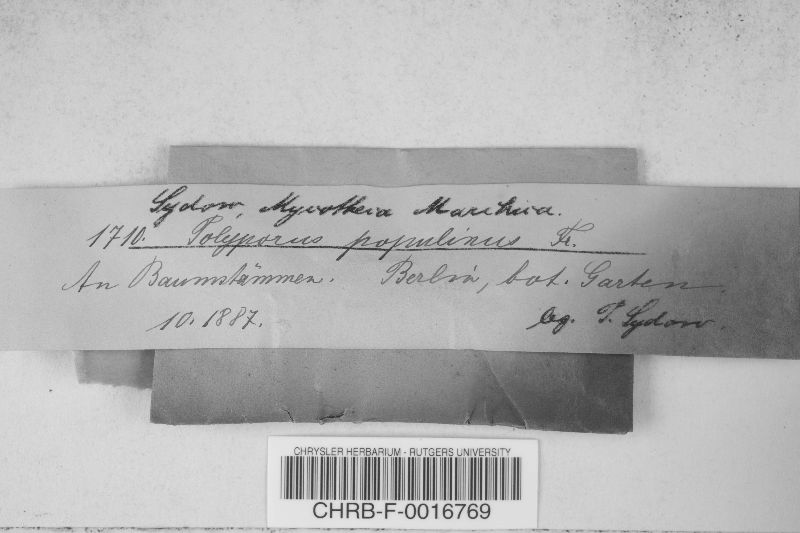 Sydow, Mycotheca Marchica.
1710. Polyporus populinus Fr.
An Baumstämmen. Berlin, bot. Garten.
10. 1887. leg. P. Sydow.
CHRYSLER HERBARIUM - RUTGERS UNIVERSITY
CHRB-F-0016769